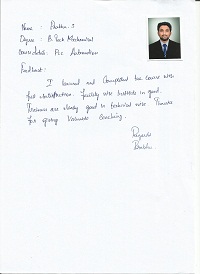 Name : Prabhu. S
Degree : B.Tech Mechanical
Course details : PLC Automation
Feedback:
I learned and Completed the course with
full satisfaction. facility wise Institute is good.
Trainers are very good in technical wise. Thanks
for giving Valuable Coaching.
Regards
Prabhu